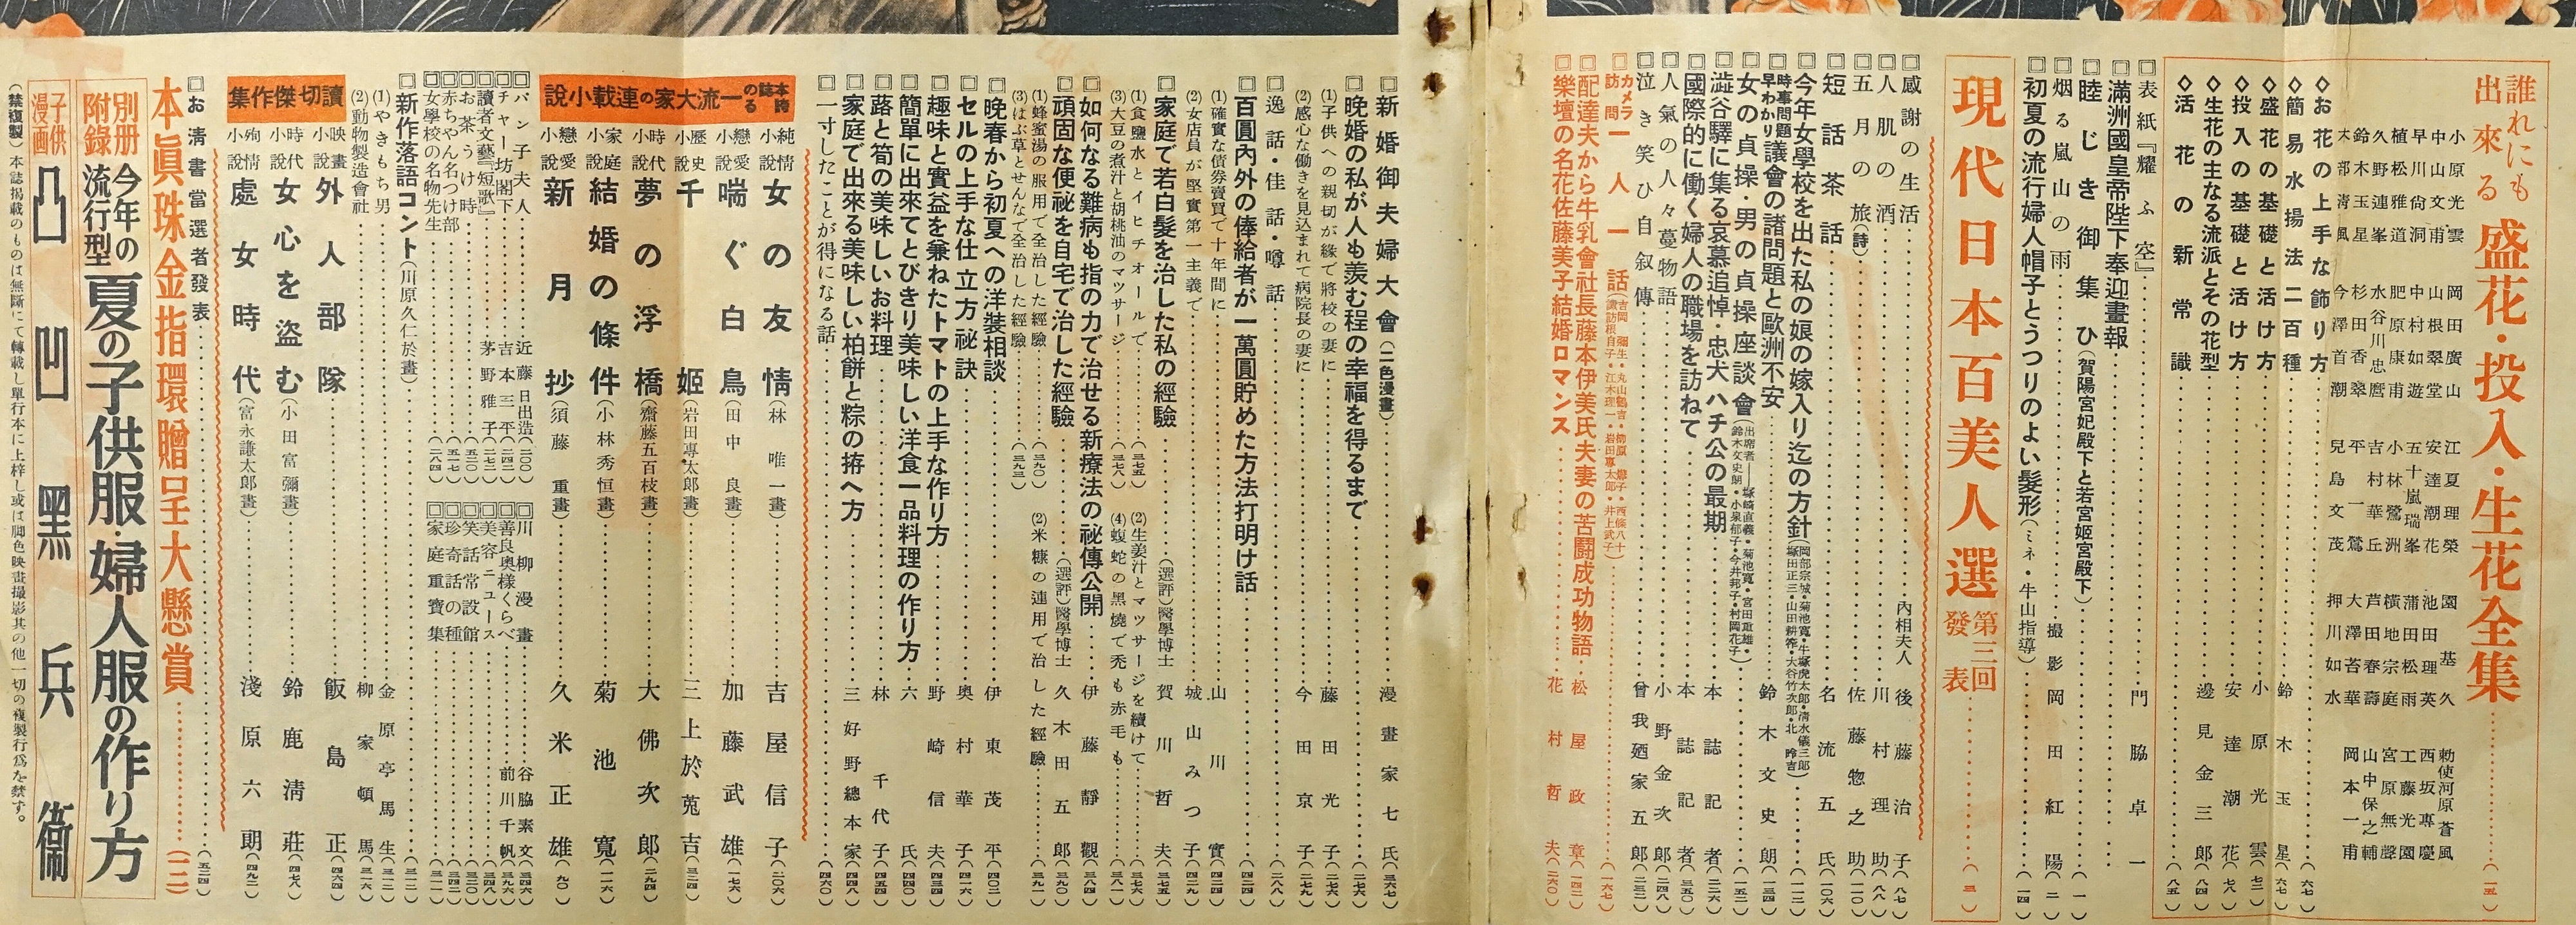 誰れにも出來る
盛花・投入・生花全集……(一五)
小原光雲
中山文甫
早川尙洞
植松雅道
久野連峯
鈴木玉星
岡田廣山
山根翠堂
中村如遊
肥原康甫
水谷川忠麿
杉田香翠
今澤首潮
江夏理榮
安達潮花
五十嵐瑞峯
小林鷺洲
吉村華丘
兒島文茂
池田理英
蒲田松雨
橫地宗庭
芦田春壽
大澤苔華
押川如水
勅使河原蒼風
西坂專慶
工藤光園
宮原無聲
山中保之輔
岡本一甫
◇お花の上手な飾り方……(六七)
◇簡易水揚法二百種……鈴木玉星(六七)
◇盛花の基礎と活け方……小原光雲(七二)
◇投入の基礎と活け方……安達潮花(七八)
◇生花の主なる流派とその花型……邊見金三郎(八四)
◇活花の新常識……(八五)
表紙『耀ふ空』……門脇卓一
滿洲國皇帝陛下奉迎畫報……(一)
睦じき御集ひ(賀陽宮妃殿下と若宮姬宮殿下)……
烟る嵐山の雨……撮影 岡田紅陽(二)
初夏の流行婦人帽子とうつりのよい髮形(ミネ・牛山指導)……(一四)
現代日本百美人選 第三回發表……(三)
感謝の生活……內相夫人 後藤治子(八七)
人肌の酒……川村理助(八八)
五月の旅(詩)……佐藤惣之助(一一〇)
短話茶話……名流五氏(一〇六)
今年女學校を出た私の娘の嫁入り迄の方針……(一一二)
時事問題早わかり 議會の諸問題と歐洲不安……鈴木文史朗(一三四)
女の貞操・男の貞操座談會……(一五二)
澁谷驛に集る哀慕追悼・忠犬ハチ公の最期……本誌記者(二二六)
國際的に働く婦人の職場を訪ねて……本誌記者(三五〇)
人氣の人々蔓物語……小野金次郎(二四八)
泣き笑ひ自叙傳……曾我廼家五郎(二三二)
カメラ訪問 一人一話……(一六七)
配達夫から牛乳會社長藤本伊美氏夫妻の苦鬪成功物語……松屋政章(一四二)
樂壇の名花佐藤美子結婚ロマンス……花村哲夫(二六〇)
新婚御夫婦大會(二色漫畫)……漫畫家七氏(三六七)
晩婚の私が人も羨む程の幸福を得るまで……(二七六)
(1)子供への親切が緣で將校の妻に……藤田光子(二七六)
(2)感心な働きを見込まれて病院長の妻に……今田京子(二七九)
逸話・佳話・噂話……(二八八)
百圓內外の俸給者が一萬圓貯めた方法打明け話……(四二四)
(1)確實な債券賣買で十年間に……山川實(四二四)
(2)女店員が堅實第一主義で……城山みつ子(四二九)
家庭で若白髮を治した私の經驗……(選評)醫學博士 賀川哲夫(三七五)
(1)食鹽水とイヒチオールで……(三七五)
(2)生姜汁とマツサージを續けて……(三七六)
(3)大豆の煮汁と胡桃油のマツサージ……(三七八)
(4)蝮蛇の黑燒で禿も赤毛も……(三八一)
如何なる難病も指の力で治せる新療法の祕傳公開……伊藤靜觀(三八四)
頑固な便祕を自宅で治した經驗……(選評)醫學博士 久木田五郎(三九〇)
(1)蜂蜜湯の服用で全治した經驗……(三九〇)
(2)米糠の連用で治した經驗……(三九一)
(3)はぶ草とせんなで全治した經驗……(三九三)
晩春から初夏への洋裝相談……伊東茂平(四〇二)
セルの上手な仕立方祕訣……奧村華子(四一六)
趣味と實益を兼ねたトマトの上手な作り方……野崎信夫(四三四)
簡單に出來てとびきり美味しい洋食一品料理の作り方……六氏(四四〇)
蕗と筍の美味しいお料理……林千代子(四五四)
家庭で出來る美味しい柏餅と粽の拵へ方……三好野總本家(四四八)
一寸したことが得になる話……(四六〇)
本誌の誇る一流大家の連載小說
純情小說 女の友情(林唯一畫)……吉屋信子(二〇六)
戀愛小說 喘ぐ白鳥(田中良畫)……加藤武雄(一七六)
歷史小說 千姬(岩田專太郎畫)……三上於菟吉(三二四)
時代小說 夢の浮橋(齋藤五百枝畫)……大佛次郎(二九四)
家庭小說 結婚の條件(小林秀恒畫)……菊池寬(一一六)
戀愛小說 新月抄(須藤重畫)……久米正雄(九〇)
パン子夫人……近藤日出造(二〇〇)
チャー坊閣下……吉本三平(二四二)
讀者文藝『短歌』……茅野雅子(二七二)
お茶うけ時……(五三〇)
赤ちやん名つけ部……(五一七)
女學校の名物先生……(二八四)
川柳漫畫……谷脇素文(三四六)
善良奧樣くらべ……前川千帆(三九六)
美容ニュース……(四八八)
笑話常設館……(三二〇)
珍奇話の種……(三四二)
家庭重寶集……(三一一)
新作落語コント(川原久仁於畫)……(三一二)
(1)やきもち男……金原亭馬生(三一二)
(2)動物製造會社……柳家頓馬(三一六)
讀切傑作集
映畫小說 外人部隊……飯島正(四六四)
時代小說 女心を盜む(小田富彌畫)……鈴鹿淸莊(四七八)
殉情小說 處女時代(富永謙太郎畫)……淺原六朗(四九二)
お淸書當選者發表……(五二四)
本眞珠金指環贈呈大懸賞……(一二)
別册附錄 今年の流行型 夏の子供服・婦人服の作り方
子供漫画 凸凹黑兵衞
(禁複製)本誌揭載のものは無斷にて轉載し單行本に上梓し或は脚色映畫撮影其の他一切の複製行爲を禁ず。